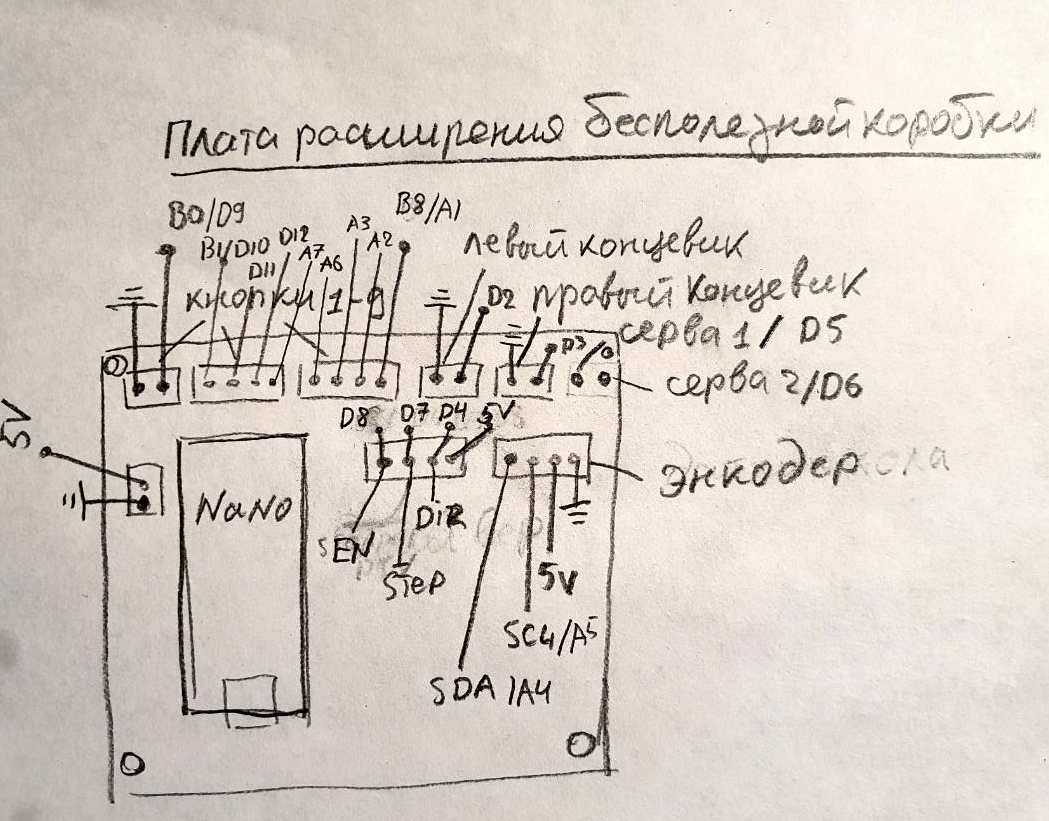 Плата расширения бесполезной коробки
B0/D9
B1/D10
D11
D12
A7
A6
A3
A2
B8/A1
кнопки 1-9
левый концевик
D2
правый концевик
D3
серва 1 / D5
серва 2/D6
D8 D7 D4 5V
5V
NaNo
Энкодер
EN
STep
DiR
5V
SCL/A5
SDA/A4